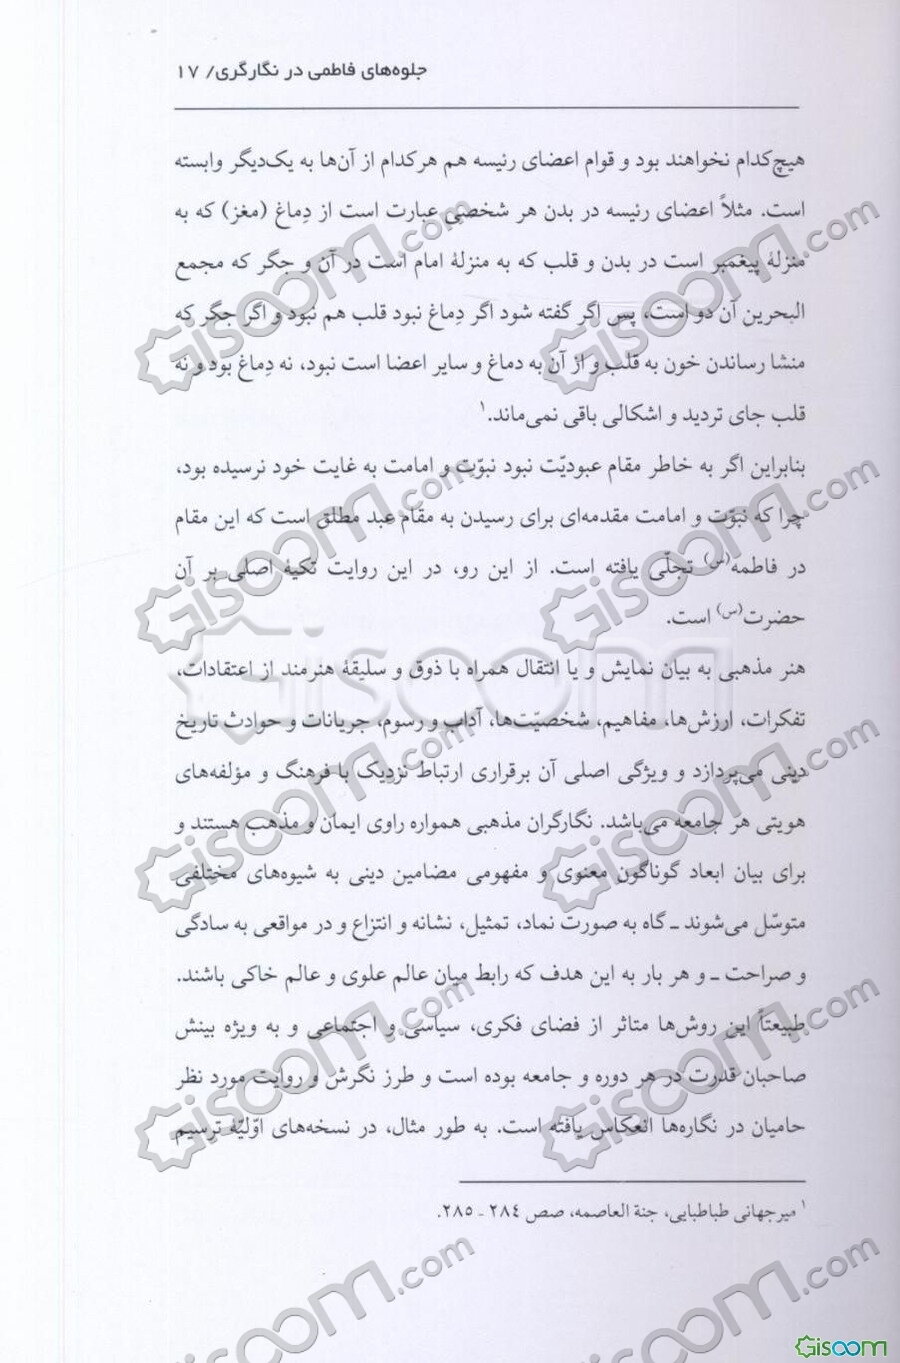 جلوه‌های فاطمی در نگارگری/ ۱۷
هیچ‌کدام نخواهند بود و قوام اعضای رئیسه هم هرکدام از آن‌ها به یک‌دیگر وابسته
است. مثلاً اعضای رئیسه در بدن هر شخصی عبارت است از دِماغ (مغز) که به
منزلهٔ پیغمبر است در بدن و قلب که به منزلهٔ امام است در آن و جگر که مجمع
البحرین آن دو است، پس اگر گفته شود اگر دِماغ نبود قلب هم نبود و اگر جگر که
منشا رساندن خون به قلب و از آن به دماغ و سایر اعضا است نبود، نه دِماغ بود و نه
قلب جای تردید و اشکالی باقی نمی‌ماند.۱
بنابراین اگر به خاطر مقام عبودیّت نبود نبوّت و امامت به غایت خود نرسیده بود،
چرا که نبوّت و امامت مقدمه‌ای برای رسیدن به مقام عبد مطلق است که این مقام
در فاطمه(س) تجلّی یافته است. از این رو، در این روایت تکیهٔ اصلی بر آن
حضرت(س) است.
هنر مذهبی به بیان نمایش و یا انتقال همراه با ذوق و سلیقهٔ هنرمند از اعتقادات،
تفکرات، ارزش‌ها، مفاهیم، شخصیّت‌ها، آداب و رسوم، جریانات و حوادث تاریخ
دینی می‌پردازد و ویژگی اصلی آن برقراری ارتباط نزدیک با فرهنگ و مؤلفه‌های
هویتی هر جامعه می‌باشد. نگارگران مذهبی همواره راوی ایمان و مذهب هستند و
برای بیان ابعاد گوناگون معنوی و مفهومی مضامین دینی به شیوه‌های مختلفی
متوسّل می‌شوند ـ گاه به صورت نماد، تمثیل، نشانه و انتزاع و در مواقعی به سادگی
و صراحت ـ و هر بار به این هدف که رابط میان عالم علوی و عالم خاکی باشند.
طبیعتاً این روش‌ها متاثر از فضای فکری، سیاسی و اجتماعی و به ویژه بینش
صاحبان قدرت در هر دوره و جامعه بوده است و طرز نگرش و روایت مورد نظر
حامیان در نگاره‌ها انعکاس یافته است. به طور مثال، در نسخه‌های اوّلیّهٔ ترسیم
۱ میرجهانی طباطبایی، جنة العاصمه، صص ۲۸۴ - ۲۸۵.
Gisoom